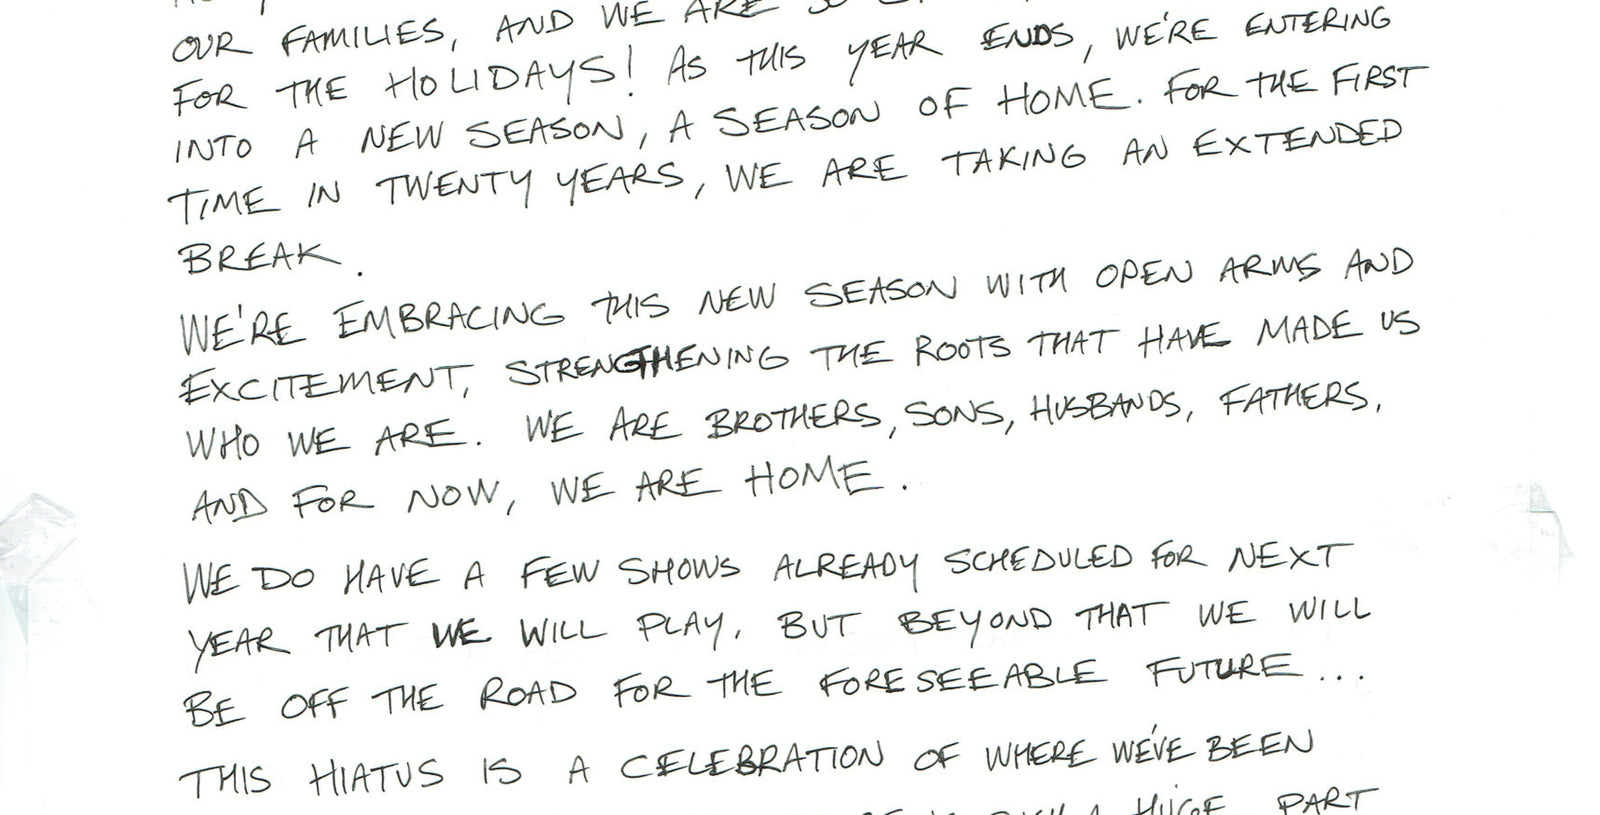 OUR FAMILIES, AND WE ARE SO
FOR THE HOLIDAYS! AS THIS YEAR ENDS, WE'RE ENTERING
INTO A NEW SEASON, A SEASON OF HOME. FOR THE FIRST
TIME IN TWENTY YEARS, WE ARE TAKING AN EXTENDED
BREAK.
WE'RE EMBRACING THIS NEW SEASON WITH OPEN ARMS AND
EXCITEMENT, STRENGTHENING THE ROOTS THAT HAVE MADE US
WHO WE ARE. WE ARE BROTHERS, SONS, HUSBANDS, FATHERS,
AND FOR NOW, WE ARE HOME.
WE DO HAVE A FEW SHOWS ALREADY SCHEDULED FOR NEXT
YEAR THAT WE WILL PLAY, BUT BEYOND THAT WE WILL
BE OFF THE ROAD FOR THE FORESEEABLE FUTURE...
THIS HIATUS IS A CELEBRATION OF WHERE WE'VE BEEN
A HUGE PART